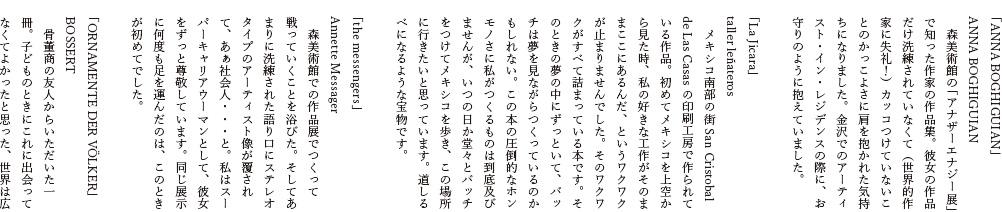 「ANNA BOGHIGUIAN」
ANNA BOGHIGUIAN
森美術館の「アナザーエナジー展」
で知った作家の作品集。彼女の作品
だけ洗練されていなくて（世界的作
家に失礼！）カッコつけていないこ
とのかっこよさに肩を抱かれた気持
ちになりました。金沢でのアーティ
スト・イン・レジデンスの際に、お
守りのように抱えていました。
「La Jícara」
taller leñateros
メキシコ南部の街 San Cristobal
de Las Casas の印刷工房で作られて
いる作品。初めてメキシコを上空か
ら見た時、私の好きな工作がそのま
まここにあるんだ、というワクワク
が止まりませんでした。そのワクワ
クがすべて詰まっている本です。そ
のときの夢の中にずっといて、バッ
チは夢を見ながらつくっているのか
もしれない。この本の圧倒的なホン
モノさに私がつくるものは到底及び
ませんが、いつの日か堂々とバッチ
をつけてメキシコを歩き、この場所
に行きたいと思っています。道しる
べになるような宝物です。
「the messengers」
Annette Messager
森美術館での作品展でつくって
戦っていくことを浴びた。そしてあ
まりに洗練された語り口にステレオ
タイプのアーティスト像が覆され
て、あぁ社会人・・・と。私はスー
パーキャリアウーマンとして、彼女
をずっと尊敬しています。同じ展示
に何度も足を運んだのは、このとき
が初めてでした。
「ORNAMENTE DER VÖLKER」
BOSSERT
骨董商の友人からいただいた一
冊。子どものときにこれに出会って
なくてよかったと思った、世界は広